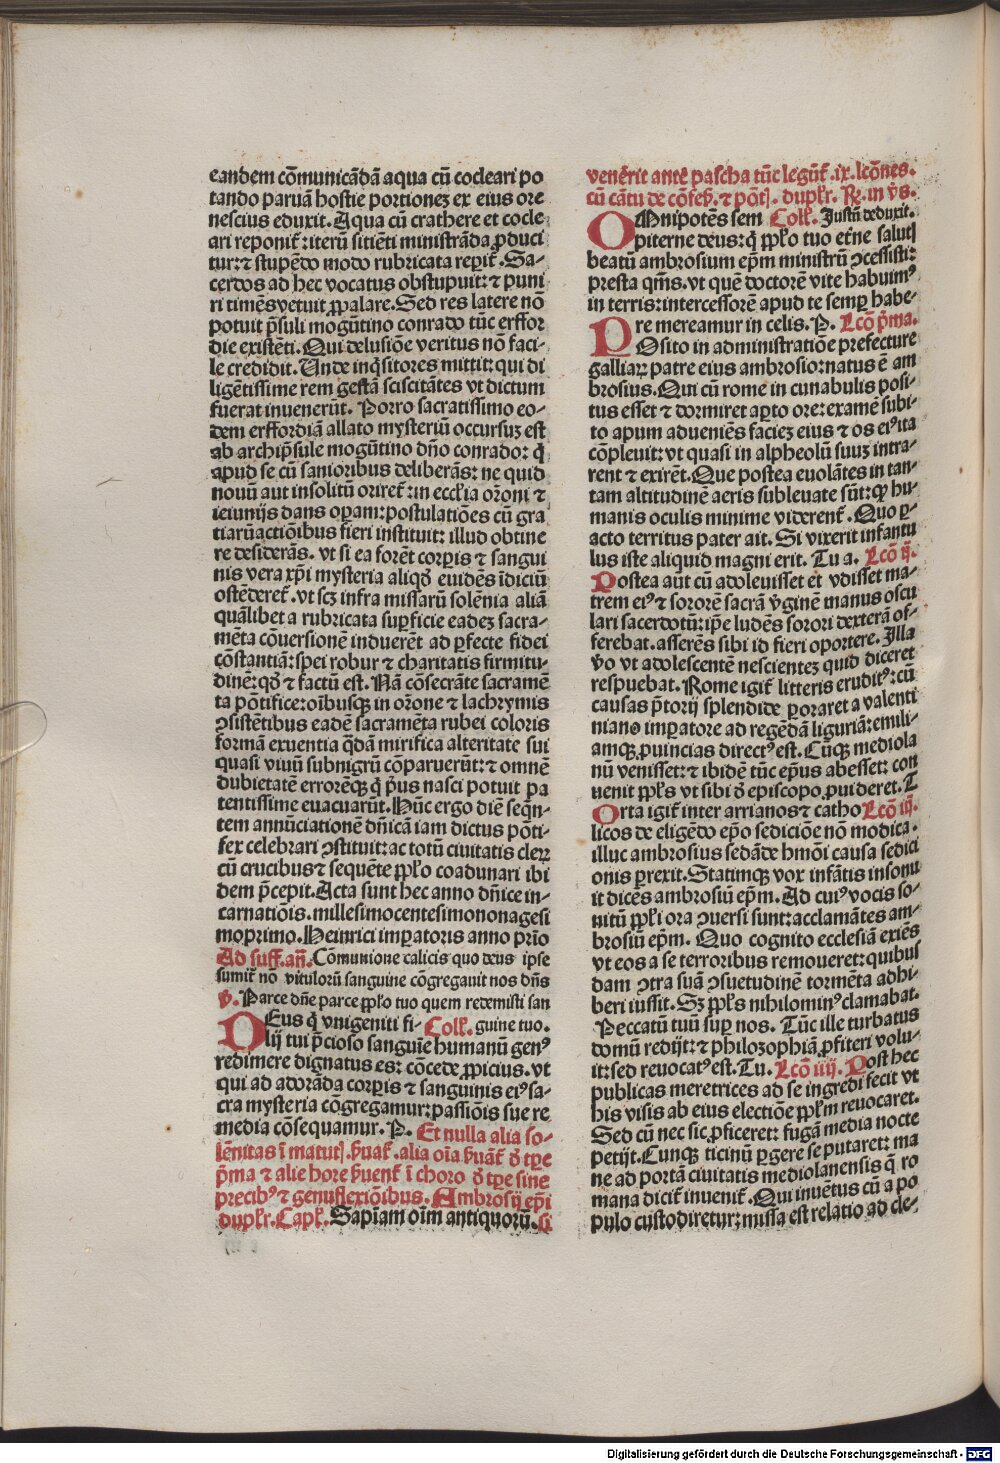 eandem cōmunicādā aqua cū cocleari po
tando paruā hostie portionez ex eius ore
nescius eduxit. Aqua cū crathere et cocle
ari reponit̄: iterū sitiēti ministrāda ꝓduci
tur: ⁊ stupēdo modo rubricata reꝑit̄. Sa-
cerdos ad hec vocatus obstupuit: ⁊ puni
ri timēs vetuit ꝓpalare. Sed res latere nō
potuit p̄suli mogūtino conrado tūc erffor
die existēti. Qui delusiōe veritus nō faci-
le credidit. Unde inq̄sitores mittit: qui di
ligētissime rem gestā sciscitātes vt dictum
fuerat inuenerūt. Porro sacratissimo eo-
dem erffordiā allato mysteriū occursuz est
ab archip̄sule mogūtino dn̄o conrado: q̄
apud se cū sanioribus deliberās: ne quid
nouū aut insolitū oriret̄: in eccl̄ia or̄oni ⁊
ieiunijs dans oꝑam: postulatiōes cū gra
tiarū actiōibus fieri instituit: illud obtine
re desiderās. vt si ea forēt corꝑis ⁊ sangui
nis vera xp̄i mysteria aliqḋ euidēs īdiciū
ostēderet̄. vt scz infra missarū solēnia aliā
quālibet a rubricata suꝑficie eadez sacra-
mēta cōuersionē induerēt ad ꝑfecte fidei
cōstantiā: spei robur ⁊ charitatis firmitu-
dinē: qḋ ⁊ factū est. Nā cōsecrāte sacramē
ta pōtifice: oībusqꝫ in or̄one ⁊ lachrymis
ꝯsistētibus eadē sacramēta rubei coloris
formā exuentia q̄dā mirifica alteritate sui
quasi viuū subnigrū cōparuerūt: ⁊ omnē
dubietatē errorēqꝫ q̄ p̄us nasci potuit pa
tentissime euacuarūt. Hūc ergo diē seqn̄-
tem annūciationē dn̄icā iam dictus pōti-
fex celebrari ꝯstituit: ac totū ciuitatis clerꝝ
cū crucibus ⁊ sequēte ppl̄o coadunari ibi
dem p̄cepit. Acta sunt hec anno dn̄ice in-
carnatiōis. millesimocentesimononagesi
moprimo. Heinrici imꝑatoris anno prīo
Ad suff. an̄. Cōmunione calicis quo deus ipse
sumit̄ nō vitulorū sanguine cōgregauit nos dn̄s
v̄. Parce dn̄e parce ppl̄o tuo quem redemisti san
DEus q̄ vnigeniti fi- Coll̄. guine tuo.
lij tui p̄cioso sanguīe humanū genꝰ
redimere dignatus es: cōcede ꝓpicius. vt
qui ad adorāda corꝑis ⁊ sanguinis eiꝰ sa-
cra mysteria cōgregamur: passiōis sue re
media cōsequamur. P. Et nulla alia so-
lēnitas ī matut̄. ẜuat̄. alia oīa ẜuāt̄ ḋ tꝑe
p̄ma ⁊ alie hore ẜuent̄ ī choro ḋ tꝑe sine
precibꝰ ⁊ genuflexiōibus. Ambrosij ep̄i
dupl̄r. Capl̄. Sapīam oīm antiquorū. Si
venērit antē pascha tūc legūt̄. ix. lcōnes.
cū cātu de cōfeſſ. ⁊ pōt̄. dupl̄r. R̄. in v̄s.
OMnipotēs sem Coll̄. Justū deduxit.
piterne deus: q̄ ppl̄o tuo etn̄e salutꝭ
beatū ambrosium ep̄m ministrū ꝯcessisti:
presta qm̄s. vt quē doctorē vite habuimꝰ
in terris: intercessorē apud te semꝑ habe-
re mereamur in celis. P. Lcō p̄ma.
POsito in administratiōe prefecture
galliaꝝ patre eius ambrosio: natus ē am
brosius. Qui cū rome in cunabulis posi-
tus esset ⁊ dormiret aꝑto ore: examē subi-
to apum adueniēs faciez eius ⁊ os eiꝰ ita
cōpleuit: vt quasi in alpheolū suuz intra-
rent ⁊ exirēt. Que postea euolātes in tan-
tam altitudinē aeris subleuate sūt: qꝙ hu-
manis oculis minime viderent̄. Quo ꝑ-
acto territus pater ait. Si vixerit infantu
lus iste aliquid magni erit. Tu a. Lcō ij.
Postea aūt cū adoleuisset et vdisset ma-
trem eiꝰ ⁊ sororē sacrā v̄ginē manus oscu
lari sacerdotū: ip̄e ludēs sorori dexterā of-
ferebat. asserēs sibi id fieri oportere. Illa
v̄o vt adolescentē nescientez quid diceret
respuebat. Rome igit̄ litteris eruditꝰ: cū
causas p̄torij splendide ꝑoraret a valenti
niano imꝑatore ad regēdā liguriā: emili-
amqꝫ ꝓuincias directꝰ est. Cūqꝫ mediola
nū venisset: ⁊ ibidē tūc ep̄us abesset: con
uenit ppl̄s vt sibi ḋ episcopo ꝓuideret. T
Orta igit̄ inter arrianos ⁊ catho Lcō iij.
licos de eligēdo ep̄o sediciōe nō modica.
illuc ambrosius sedāde hmōi causa sedici
onis ꝑrexit. Statimqꝫ vox infātis insonu
it dicēs ambrosiū ep̄m. Ad cuiꝰ vocis so-
nitū ppl̄i ora ꝯuersi sunt: acclamātes am-
brosiū ep̄m. Quo cognito ecclesiā exiēs
vt eos a se terroribus remoueret: quibus
dam ꝯtra suā ꝯsuetudinē tormēta adhi-
beri iussit. Sꝫ ppl̄s nihilominꝰ clamabat.
Peccatū tuū suꝑ nos. Tūc ille turbatus
domū redijt: ⁊ philozophiā ꝓfiteri volu-
it: sed reuocatꝰ est. Tu. Lcō iiij. Post hec
publicas meretrices ad se ingredi fecit vt
his visis ab eius electiōe ppl̄m reuocaret.
Sed cū nec sic ꝓficeret: fugā media nocte
petijt. Cunqꝫ ticinū ꝑgere se putaret: ma
ne ad portā ciuitatis mediolanensis q̄ ro
mana dicit̄ inuenit̄. Qui inuētus cū a po
pulo custodiretur: missa est relatio ad cle-
Digitalisierung gefördert durch die Deutsche Forschungsgemeinschaft - DFG